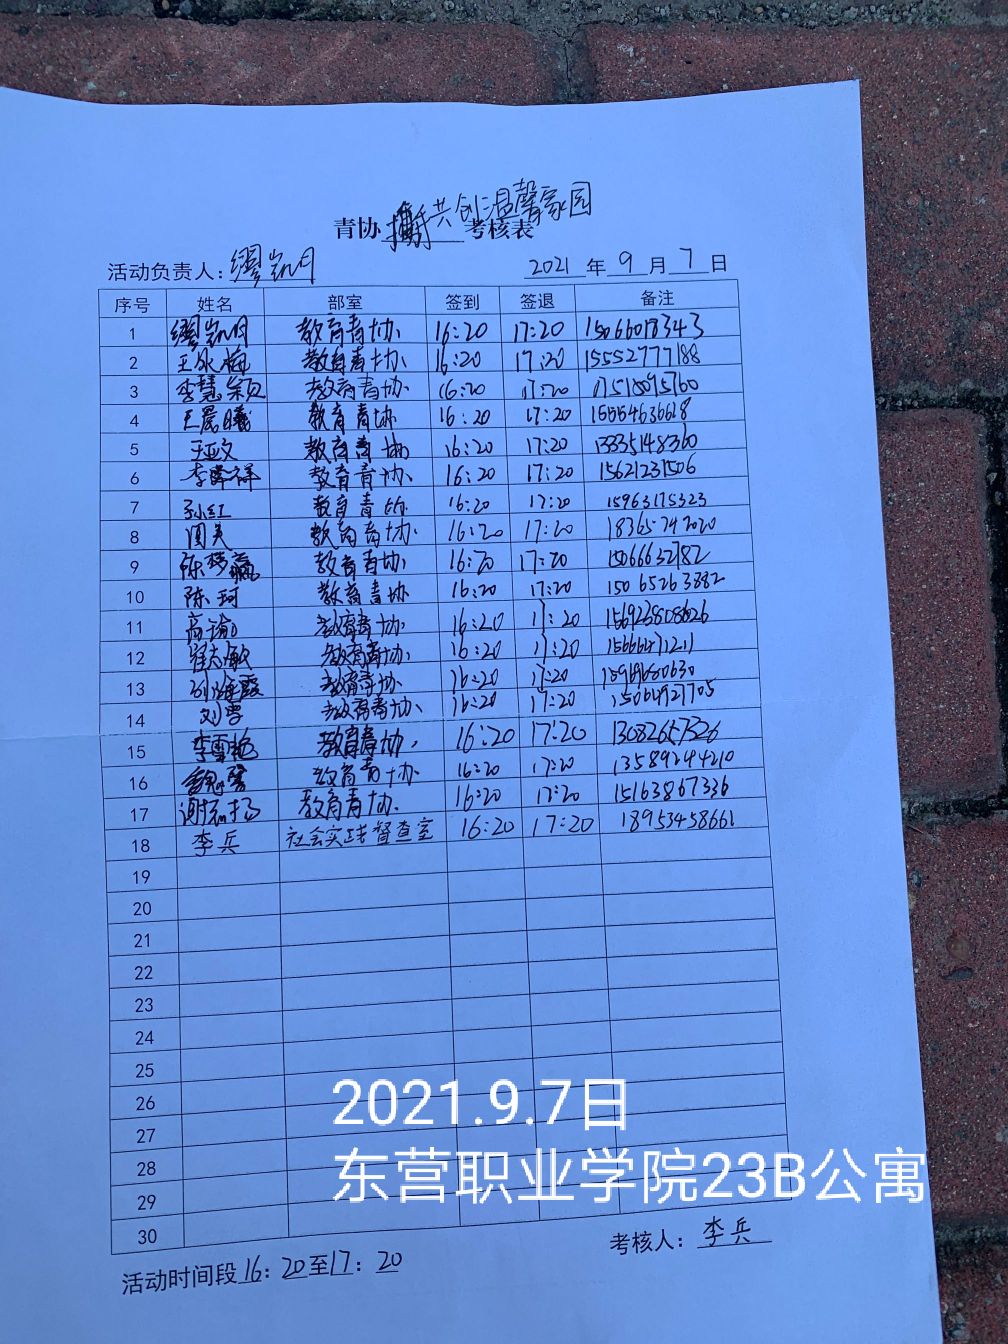 青协 携手共创温馨家园 考核表
活动负责人：缪凯月 2021年9月7日
序号 姓名 部室 签到 签退 备注
1 缪凯月 教育青协 16:20 17:20 15066018343
2 王永梅 教育青协 16:20 17:20 15552777188
3 李慧颖 教育青协 16:20 17:20 17518095760
4 王晨曦 教育青协 16:20 17:20 15554636618
5 王亚文 教育青协 16:20 17:20 13335148360
6 教育青协 16:20 17:20 15621231506
7 孙红 教育青协 16:20 17:20 15963175323
8 教育青协 16:20 17:20 18365742020
9 教育青协 16:20 17:20 15066632782
10 陈珂 教育青协 16:20 17:20 15065263882
11 高瑜 教育青协 16:20 17:20
12 崔志敏 教育青协 16:20 17:20
13 教育青协 16:20 17:20
14 刘雪 教育青协 16:20 17:20 15064927705
15 李雪艳 教育青协 16:20 17:20
16 教育青协 16:20 17:20 13589244210
17 教育青协 16:20 17:20 15163867336
18 李兵 社会实践督查室 16:20 17:20 18953458661
19
20
21
22
23
24
25
26
27
28
29
30
活动时间段16：20至17：20 考核人：李兵
2021.9.7日
东营职业学院23B公寓